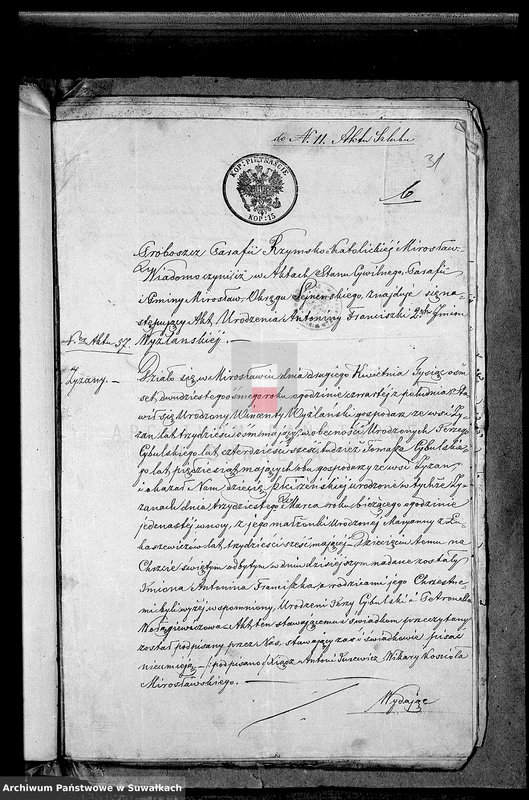 do N. 11. Aktu Szlubu
31
6
KOP: PIĘTNAŚCIE
KOP: 15
Proboszcz Parafii Rzymsko-Katolickiej Mirosław-
Wiadomo czyni iż w Aktach Stanu Cywilnego, Parafii
i Gminy Mirosław Okręgu Sejneńskiego, znajduje się na-
stępujący Akt Urodzenia Antoniny Franciszki 2ch Imion
N. Aktu 57 Wyżlańskiej.
Zyzany. — Działo się w Mirosławiu dnia drugiego Kwietnia Tysiąc ośm-
set, dwudziestego ósmego roku o godzinie czwartej z południa. Sta-
wił się Urodzony Wincenty Wyżlański gospodarz ze wsi Zy-
zan, lat trzydzieści ośm mający, w obecności Urodzonych Jerzego
Cybulskiego lat czterdzieści sześć, tudzież Tomasza Cybulskie-
go lat pięćdziesiąt mających obu gospodarzy ze wsi Zyzan,
i okazał Nam dziecię płci żeńskiej urodzone w tychże Zy-
zanach dnia trzydziestego Marca roku bieżącego o godzinie
jedenastej w nocy, z jego małżonki Urodzonej Maryanny z Łu-
kaszewiczów lat, trzydzieści sześć mającej. Dziecięciu temu na
Chrzcie świętym odbytym w dniu dzisiejszym nadane zostały
Imiona Antonina Franciszka, a rodzicami jego Chrzestne-
mi byli wyżej wspomniony, Urodzeni Jerzy Cybulski i Petronella
Akt ten stawającemu i świadkom przeczytany
został podpisany przez Nas, stawający zaś i świadkowie pisać
nieumieją. — (podpisano) Xiądz Antoni Wikary Kościoła
Mirosławskiego.
Wydając
Archiwum Państwowe w Suwałkach